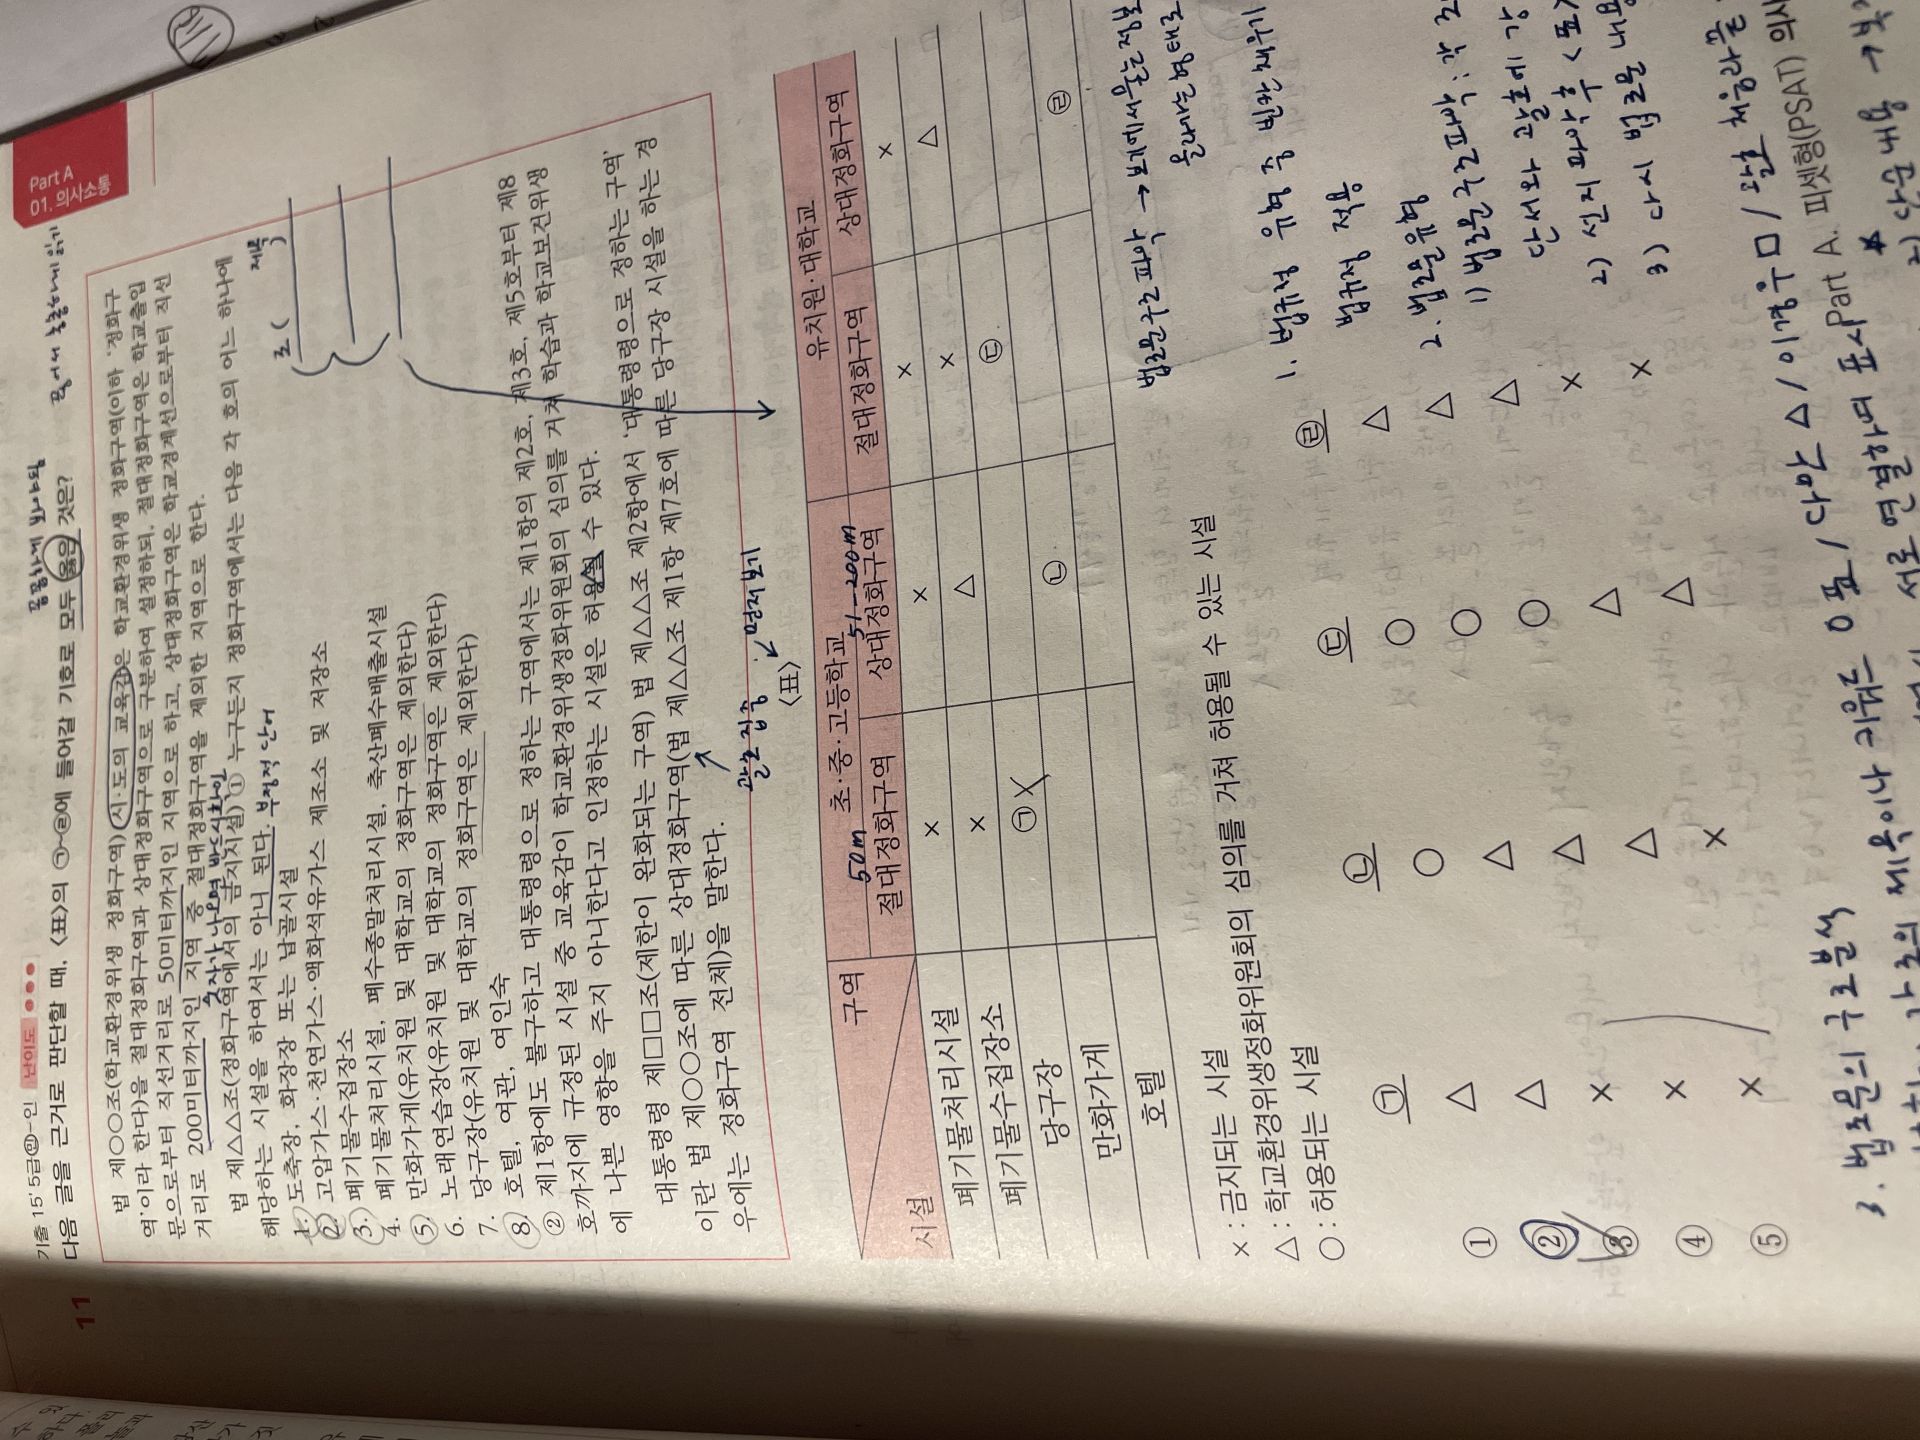 Part A
01. 의사소통
11
기출 15' 5급㉑-인 난이도 ●●●
다음 글을 근거로 판단할 때, <표>의 ㉠~㉣에 들어갈 기호로 모두 옳은 것은?
법 제○○조(학교환경위생 정화구역) 시·도의 교육감은 학교환경위생 정화구역(이하 ‘정화구
역’이라 한다)을 절대정화구역과 상대정화구역으로 구분하여 설정하되, 절대정화구역은 학교출입
문으로부터 직선거리로 50미터까지인 지역으로 하고, 상대정화구역은 학교경계선으로부터 직선
거리로 200미터까지인 지역 중 절대정화구역을 제외한 지역으로 한다.
법 제△△조(정화구역에서의 금지시설) ① 누구든지 정화구역에서는 다음 각 호의 어느 하나에
해당하는 시설을 하여서는 아니 된다. 부정적 단어
1. 도축장, 화장장 또는 납골시설
2. 고압가스·천연가스·액화석유가스 제조소 및 저장소
3. 폐기물수집장소
4. 폐기물처리시설, 폐수종말처리시설, 축산폐수배출시설
5. 만화가게(유치원 및 대학교의 정화구역은 제외한다)
6. 노래연습장(유치원 및 대학교의 정화구역은 제외한다)
7. 당구장(유치원 및 대학교의 정화구역은 제외한다)
8. 호텔, 여관, 여인숙
② 제1항에도 불구하고 대통령령으로 정하는 구역에서는 제1항의 제2호, 제3호, 제5호부터 제8
호까지에 규정된 시설 중 교육감이 학교환경위생정화위원회의 심의를 거쳐 학습과 학교보건위생
에 나쁜 영향을 주지 아니한다고 인정하는 시설은 허용될 수 있다.
대통령령 제□□조(제한이 완화되는 구역) 법 제△△조 제2항에서 ‘대통령령으로 정하는 구역’
이란 법 제○○조에 따른 상대정화구역(법 제△△조 제1항 제7호에 따른 당구장 시설을 하는 경
우에는 정화구역 전체)을 말한다.
괄호 집중
먼저 보기
<표>
구역 초·중·고등학교 유치원·대학교
시설 50m 절대정화구역 51-200m 상대정화구역 절대정화구역 상대정화구역
폐기물처리시설 × × × ×
폐기물수집장소 × △ × △
당구장 ㉠ X ㉢
만화가게 ㉡
호텔 ㉣
× : 금지되는 시설
△ : 학교환경위생정화위원회의 심의를 거쳐 허용될 수 있는 시설
○ : 허용되는 시설
㉠ ㉡ ㉢ ㉣
① △ ○ ○ △
② △ △ ○ △
③ × △ ○ △
④ × △ △ ×
⑤ × × △ ×
법조문구조파악 → 보기에서묻는정보
1. 법규정 유형 중 빈칸채우기
법규정 적용
2. 법조문유형
1) 법조문구조파악 : 각 조
단서와 괄호에 강
2) 선지파악 후 <표>
3) 다시 법조문 내용
3. 법조문의 구조분석
Part A. 피셋형(PSAT) 의사